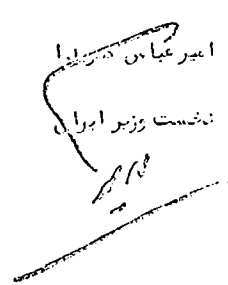 امیر عباس هویدا
نخست وزیر ایران